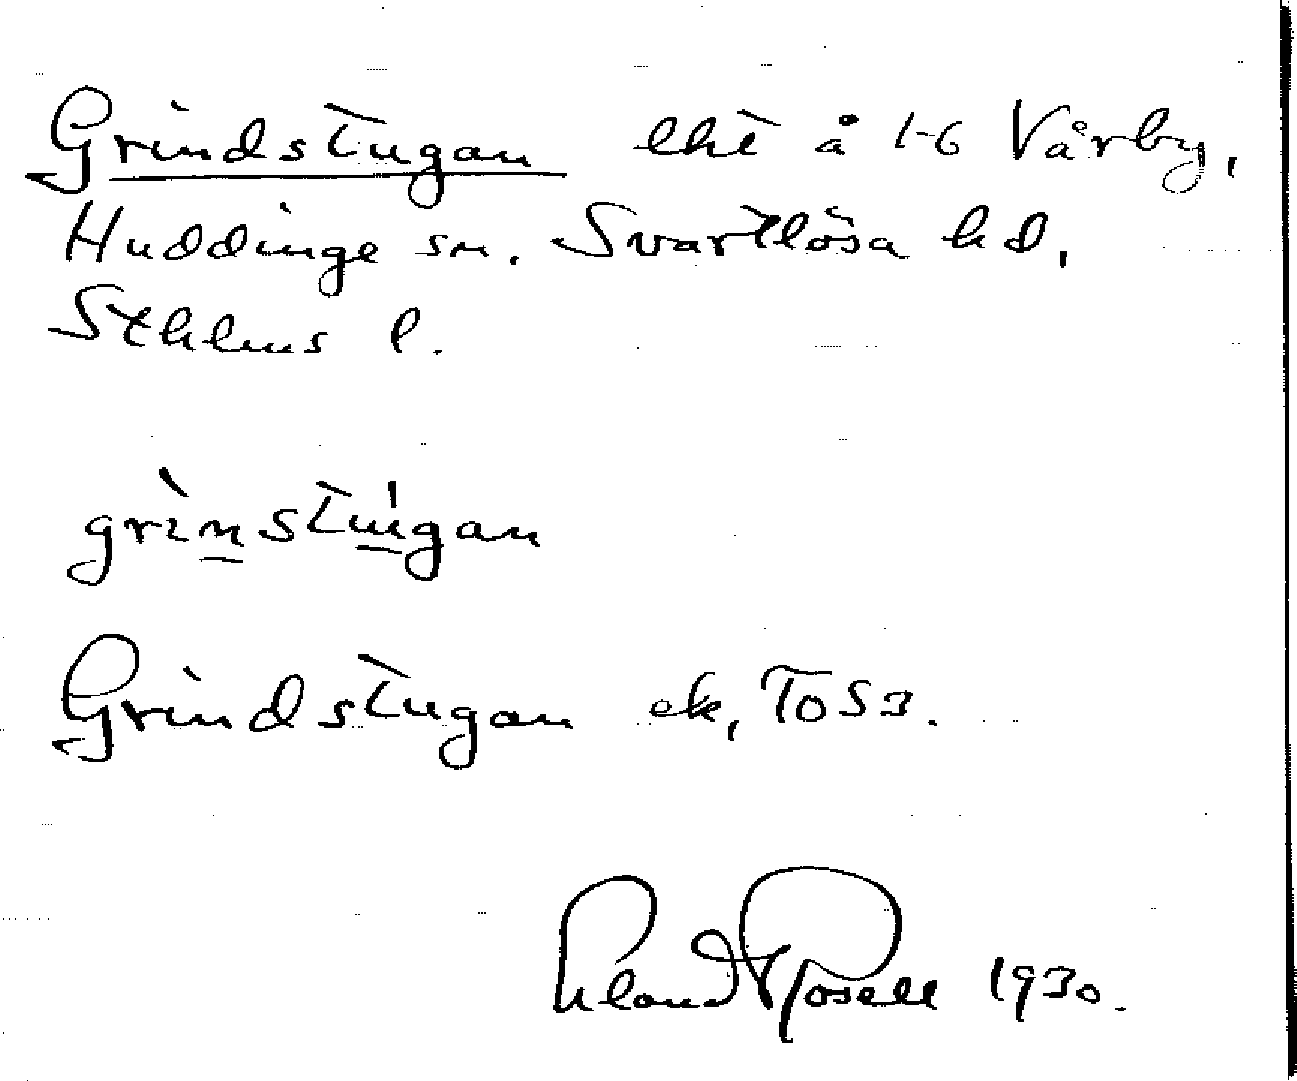 Grindstugan lht å 1-6 Vårby,
Huddinge sn. Svartlösa hd,
Sthlms l.
grìnstu̍gan
Grindstugan ek, TOS3.
Rosell 1930.